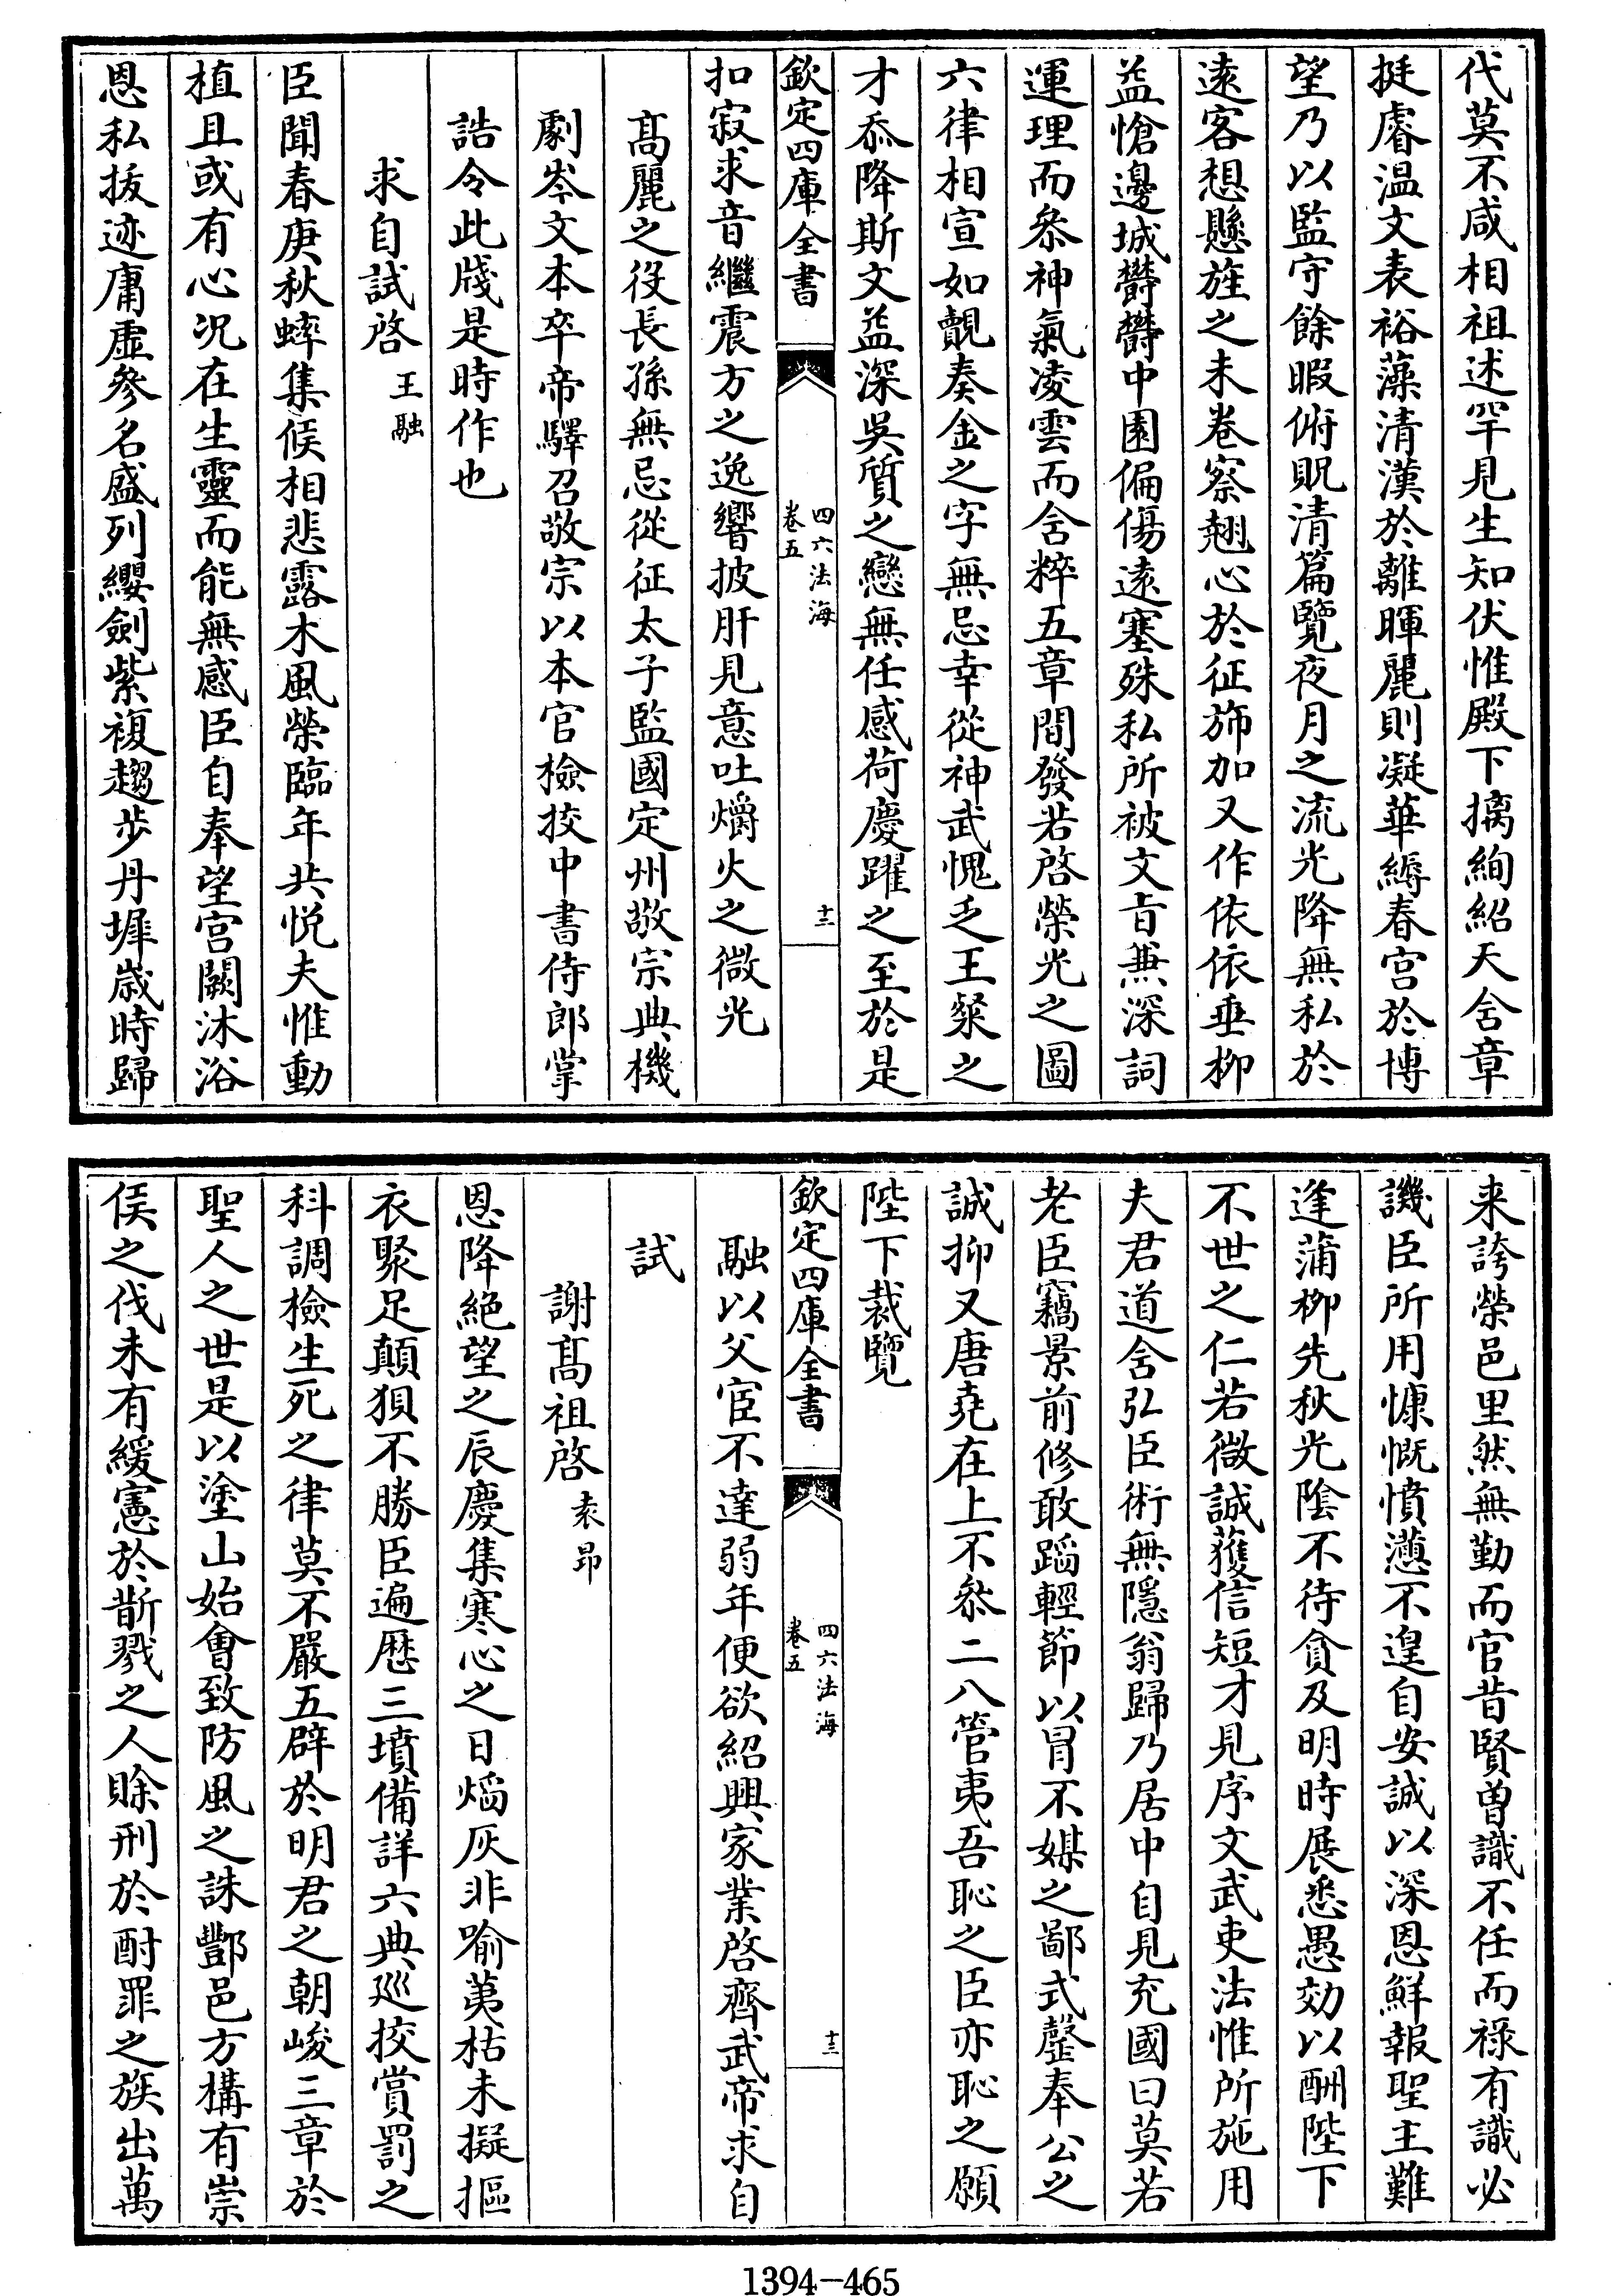 代莫不咸相祖述罕見生知伏惟殿下摛絢紹天含章
挺睿温文表裕藻清漢於離暉麗則凝華縟春宫於博
望乃以監守餘暇俯貺清篇覽夜月之流光降無私於
遠客想懸旌之未卷察翹心於征斾加又作依依垂柳
益愴邊城欝欝中園偏傷遠塞殊私所被文㫖兼深詞
運理而叅神氣凌雲而含粹五章間發若啓榮光之圖
六律相宣如覿奏金之字無忌幸從神武愧乏王粲之
才忝降斯文益深吳質之戀無任感荷慶躍之至於是
欽定四庫全書
四六法海
卷五
十二
扣寂求音繼震方之逸響披肝見意吐爝火之微光
髙麗之役長孫無忌從征太子監國定州敬宗典機
劇岑文本卒帝驛召敬宗以本官檢挍中書侍郎掌
誥令此牋是時作也
求自試啓 王融
臣聞春庚秋蟀集候相悲露木風榮臨年共悦夫惟動
植且或有心况在生靈而能無感臣自奉望宫闕沐浴
恩私拔迹庸虚參名盛列纓劍紫複趨步丹墀歲時歸
来誇榮邑里然無勤而官昔賢曾識不任而禄有識必
譏臣所用慷慨憤懣不遑自安誠以深恩鮮報聖主難
逢蒲栁先秋光陰不待貪及明時展悉愚効以酬陛下
不世之仁若微誠獲信短才見序文武吏法惟所施用
夫君道含弘臣術無隱翁歸乃居中自見充國曰莫若
老臣竊景前修敢蹈輕節以冒不媒之鄙式罄奉公之
誠抑又唐堯在上不叅二八管夷吾恥之臣亦恥之願
陛下裁覽
欽定四庫全書
四六法海
卷五
十三
融以父宦不達弱年便欲紹興家業啓齊武帝求自
試
謝髙祖啓 袁昻
恩降絶望之辰慶集寒心之日焰灰非喻荑枯未擬摳
衣聚足顛狽不勝臣遍歴三墳備詳六典廵挍賞罰之
科調檢生死之律莫不嚴五辟於明君之朝峻三章於
聖人之世是以塗山始會致防風之誅酆邑方構有崇
侯之伐未有緩憲於斮戮之人賖刑於酎罪之族出萬
1394-465